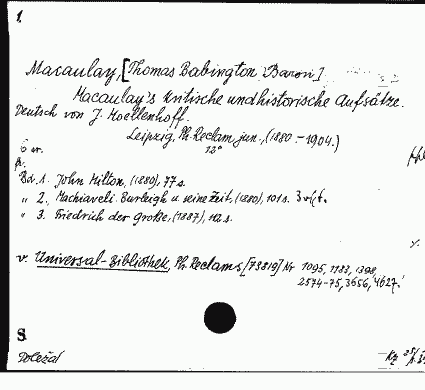 1.
Macaulay, [Thomas Babington Baron]
Macaulay's kritische und historische Aufsätze.
Deutsch von J. Moellenhoff.
Leipzig, Ph. Reclam jun., (1880-1904.)
6 sv. 12°
Bd. 1. John Milton, (1880), 77 s.
" 2. Machiaveli. Burleigh u. seine Zeit, (1880), 101 s.
" 3. Friedrich der Große, (1887), 112 s.
v. Universal-Bibliothek, Ph. Reclams [73819] Nr 1095, 1183, 1398,
2574-75, 3656, 4627.
S
Doležal